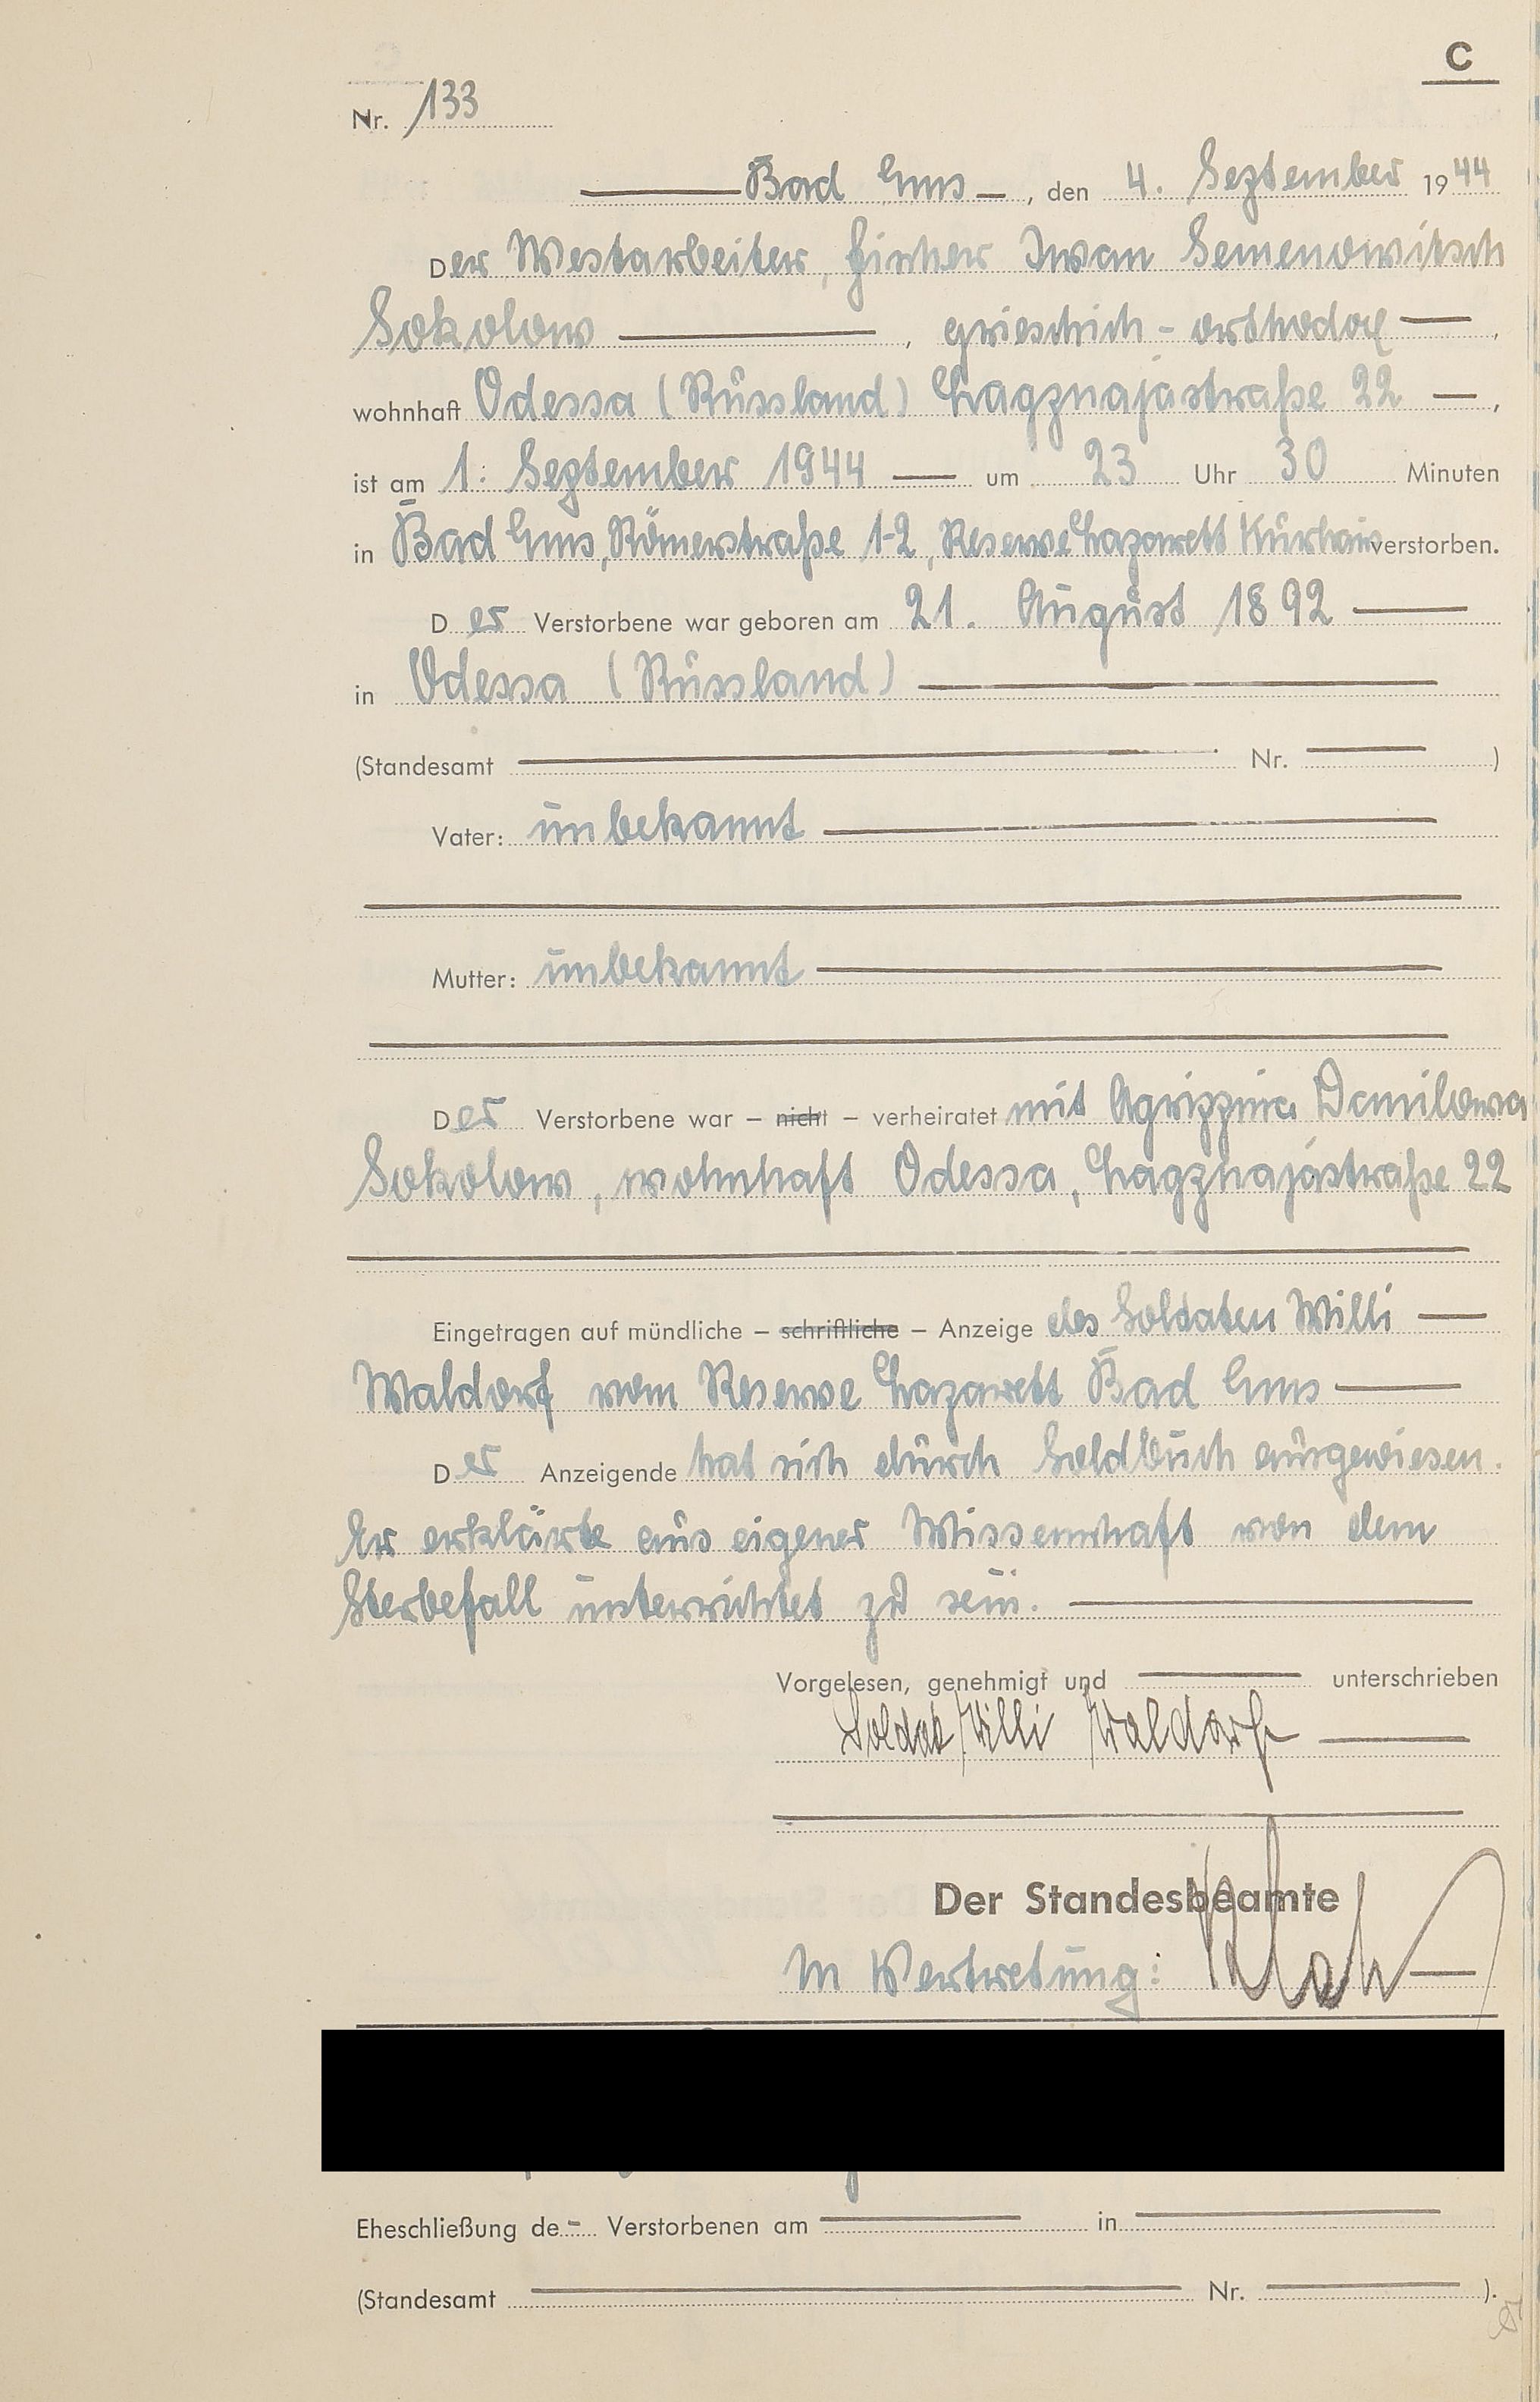 C
Nr. 133
Bad Ems, den 4. September 1944
Der Westarbeiter, Fischer Iwan Semenowitsch
Sokolow, griechisch-orthodox,
wohnhaft Odessa (Russland) Lagznajastraße 22,
ist am 1. September 1944 um 23 Uhr 30 Minuten
in Bad Ems, Römerstraße 1-2, Reserve Lazarett Kurhaus verstorben.
Der Verstorbene war geboren am 21. August 1892
in Odessa (Russland)
(Standesamt Nr. )
Vater: unbekannt
Mutter: unbekannt
Der Verstorbene war – nicht – verheiratet mit Agrippina Danilowa
Sokolow, wohnhaft Odessa, Lagznajastraße 22
Eingetragen auf mündliche – schriftliche – Anzeige des Soldaten Willi
Waldorf vom Reserve Lazarett Bad Ems
Der Anzeigende hat sich durch Soldbuch ausgewiesen.
Er erklärte aus eigener Wissenschaft von dem
Sterbefall unterrichtet zu sein.
Vorgelesen, genehmigt und unterschrieben
Soldat Willi Waldorf
Der Standesbeamte
In Vertretung:
Eheschließung de - Verstorbenen am in
(Standesamt Nr. ).